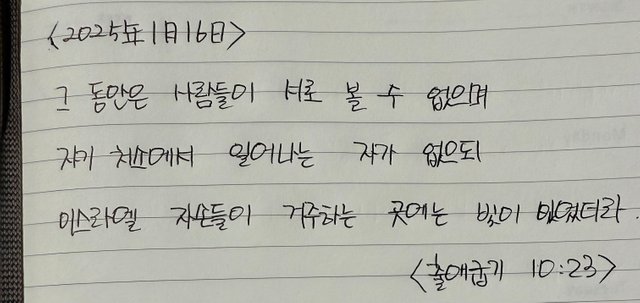 <2025年 1月 16日>
그 동안은 사람들이 서로 볼 수 없으며
자기 처소에서 일어나는 자가 없으되
이스라엘 자손들이 거주하는 곳에는 빛이 있었더라.
<출애굽기 10:23>